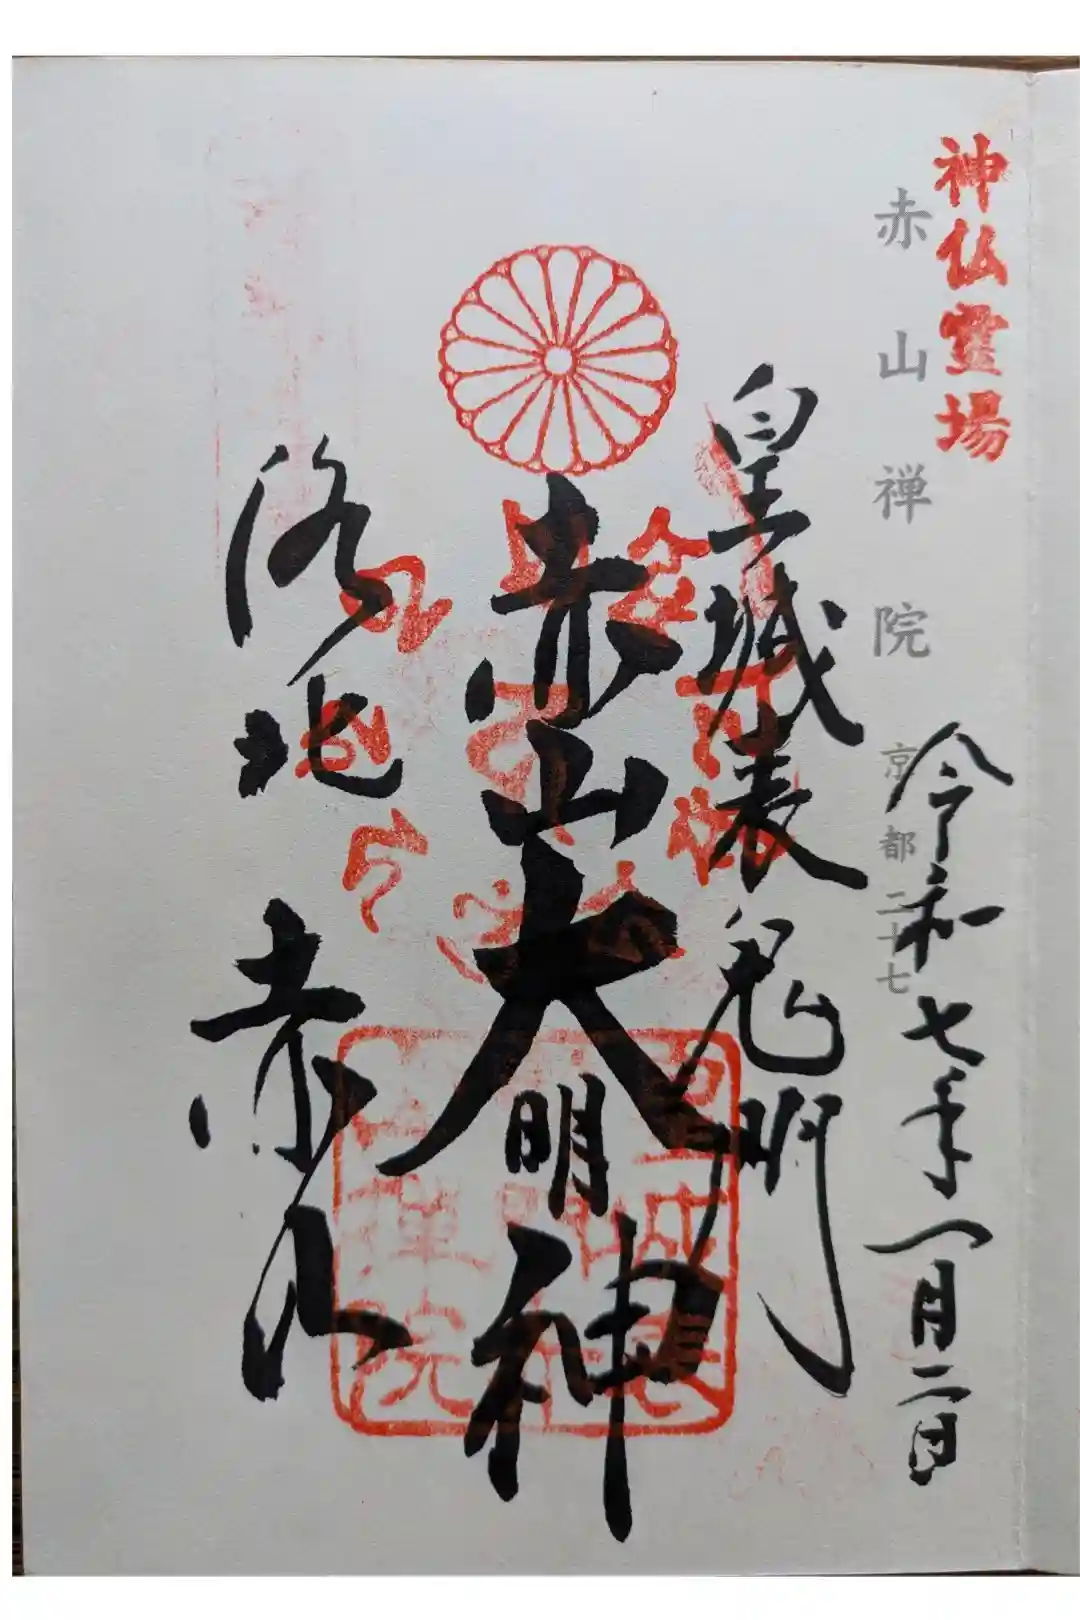 神仏霊場
赤山禅院 京都二十七
令和七年一月二日
皇城表鬼門
赤山大明神
洛北 赤山
皇城
禅院